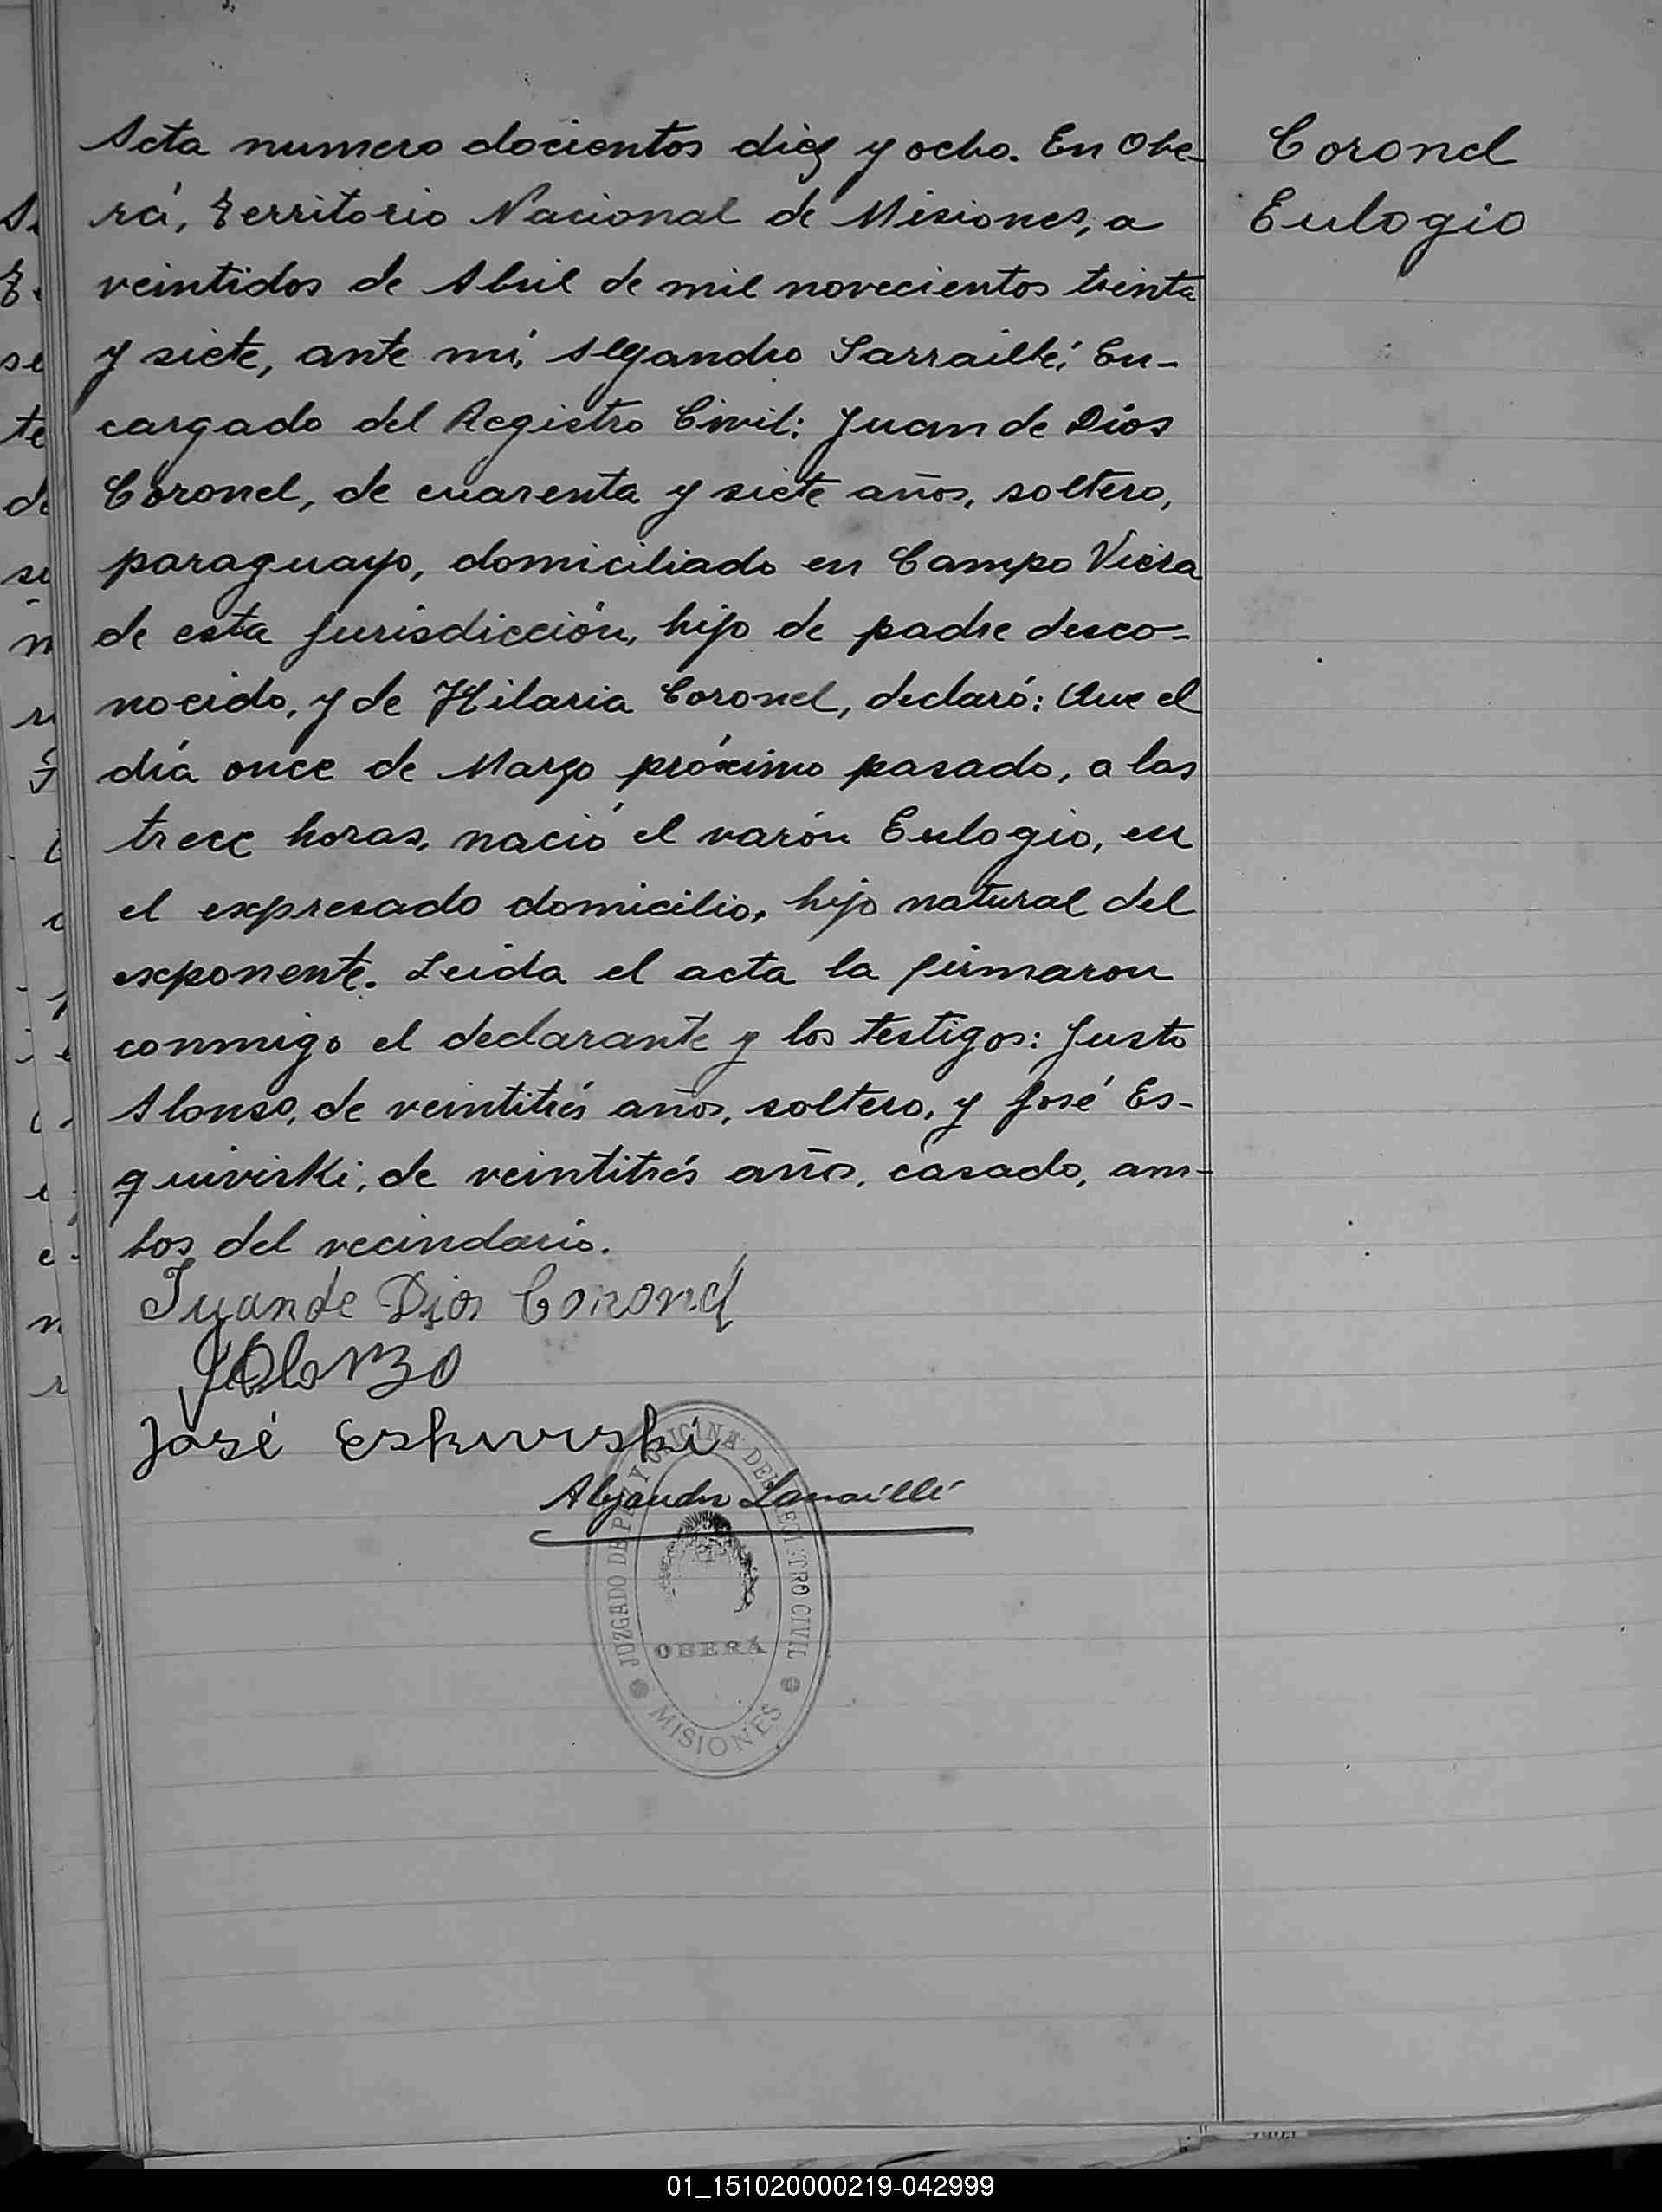 Acta numero docientos diez y ocho. En Obe-
rá, Territorio Nacional de Misiones, a
veintidos de Abril de mil novecientos treinta
y siete, ante mí, Alejandro Larraillé, En-
cargado del Registro Civil: Juan de Dios
Coronel, de cuarenta y siete años, soltero,
paraguayo, domiciliado en Campo Viera
de esta jurisdicción, hijo de padre desco-
nocido, y de Hilaria Coronel, declaró: Que el
día once de Marzo próximo pasado, a las
trece horas, nació el varón Eulogio, en
el expresado domicilio, hijo natural del
exponente. Leida el acta la firmaron
conmigo el declarante y los testigos: Justo
Alonso, de veintitrés años, soltero, y José Es-
quiviski, de veintitrés años, casado, am-
bos del vecindario.
Juan de Dios Coronel
JAlonzo
José Eskiviski
Alejandro Larraillé
JUZGADO DE PAZ Y OFICINA DEL REGISTRO CIVIL
OBERÁ
MISIONES
Coronel
Eulogio
01_151020000219-042999